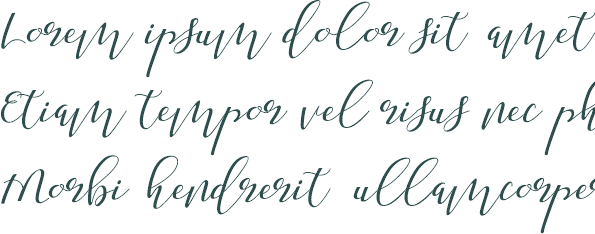 Lorem ipsum dolor sit amet
Etiam tempor vel risus nec ph
Morbi hendrerit ullamcorper